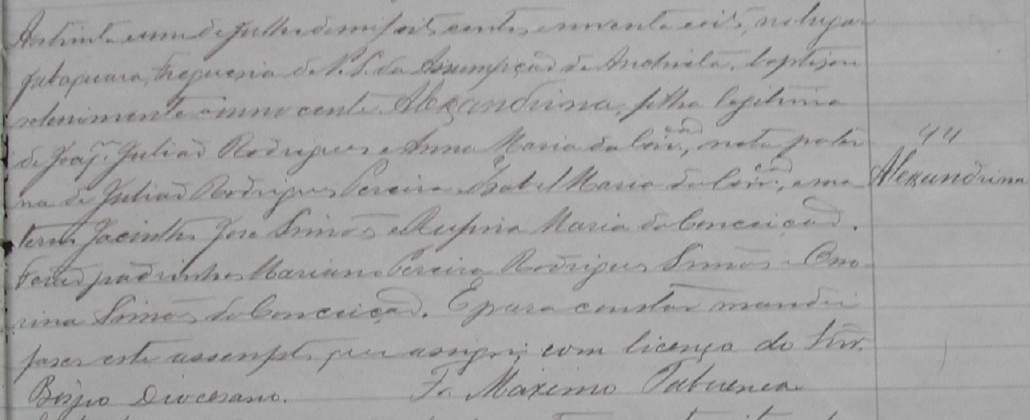 Aos trinta e um de Julho de mil oito centos e noventa e oito, no lugar
Jabaquara, freguesia de N. S. da Assumpção de Anchieta, baptisou
solenimente a innocente Alexandrina, filha legitima
de Joaqᵐ Julião Rodrigues e Anna Maria da Concᵃᵒ, neta pater
na de Julião Rodrigues Pereira e Isabel Maria da Concᵃᵒ, e ma
terna Jacintho Jose Simōs e Rufina Maria da Conceição.
Forão padrinhos Mariano Pereira Rodrigues Simōs e
rina Simōs da Conceição. E para constar mandei
faser este assento que assigno com licença do Snr.
Bispo Diocesano. Fr. Maximo Tabuenca
44
Alexandrina